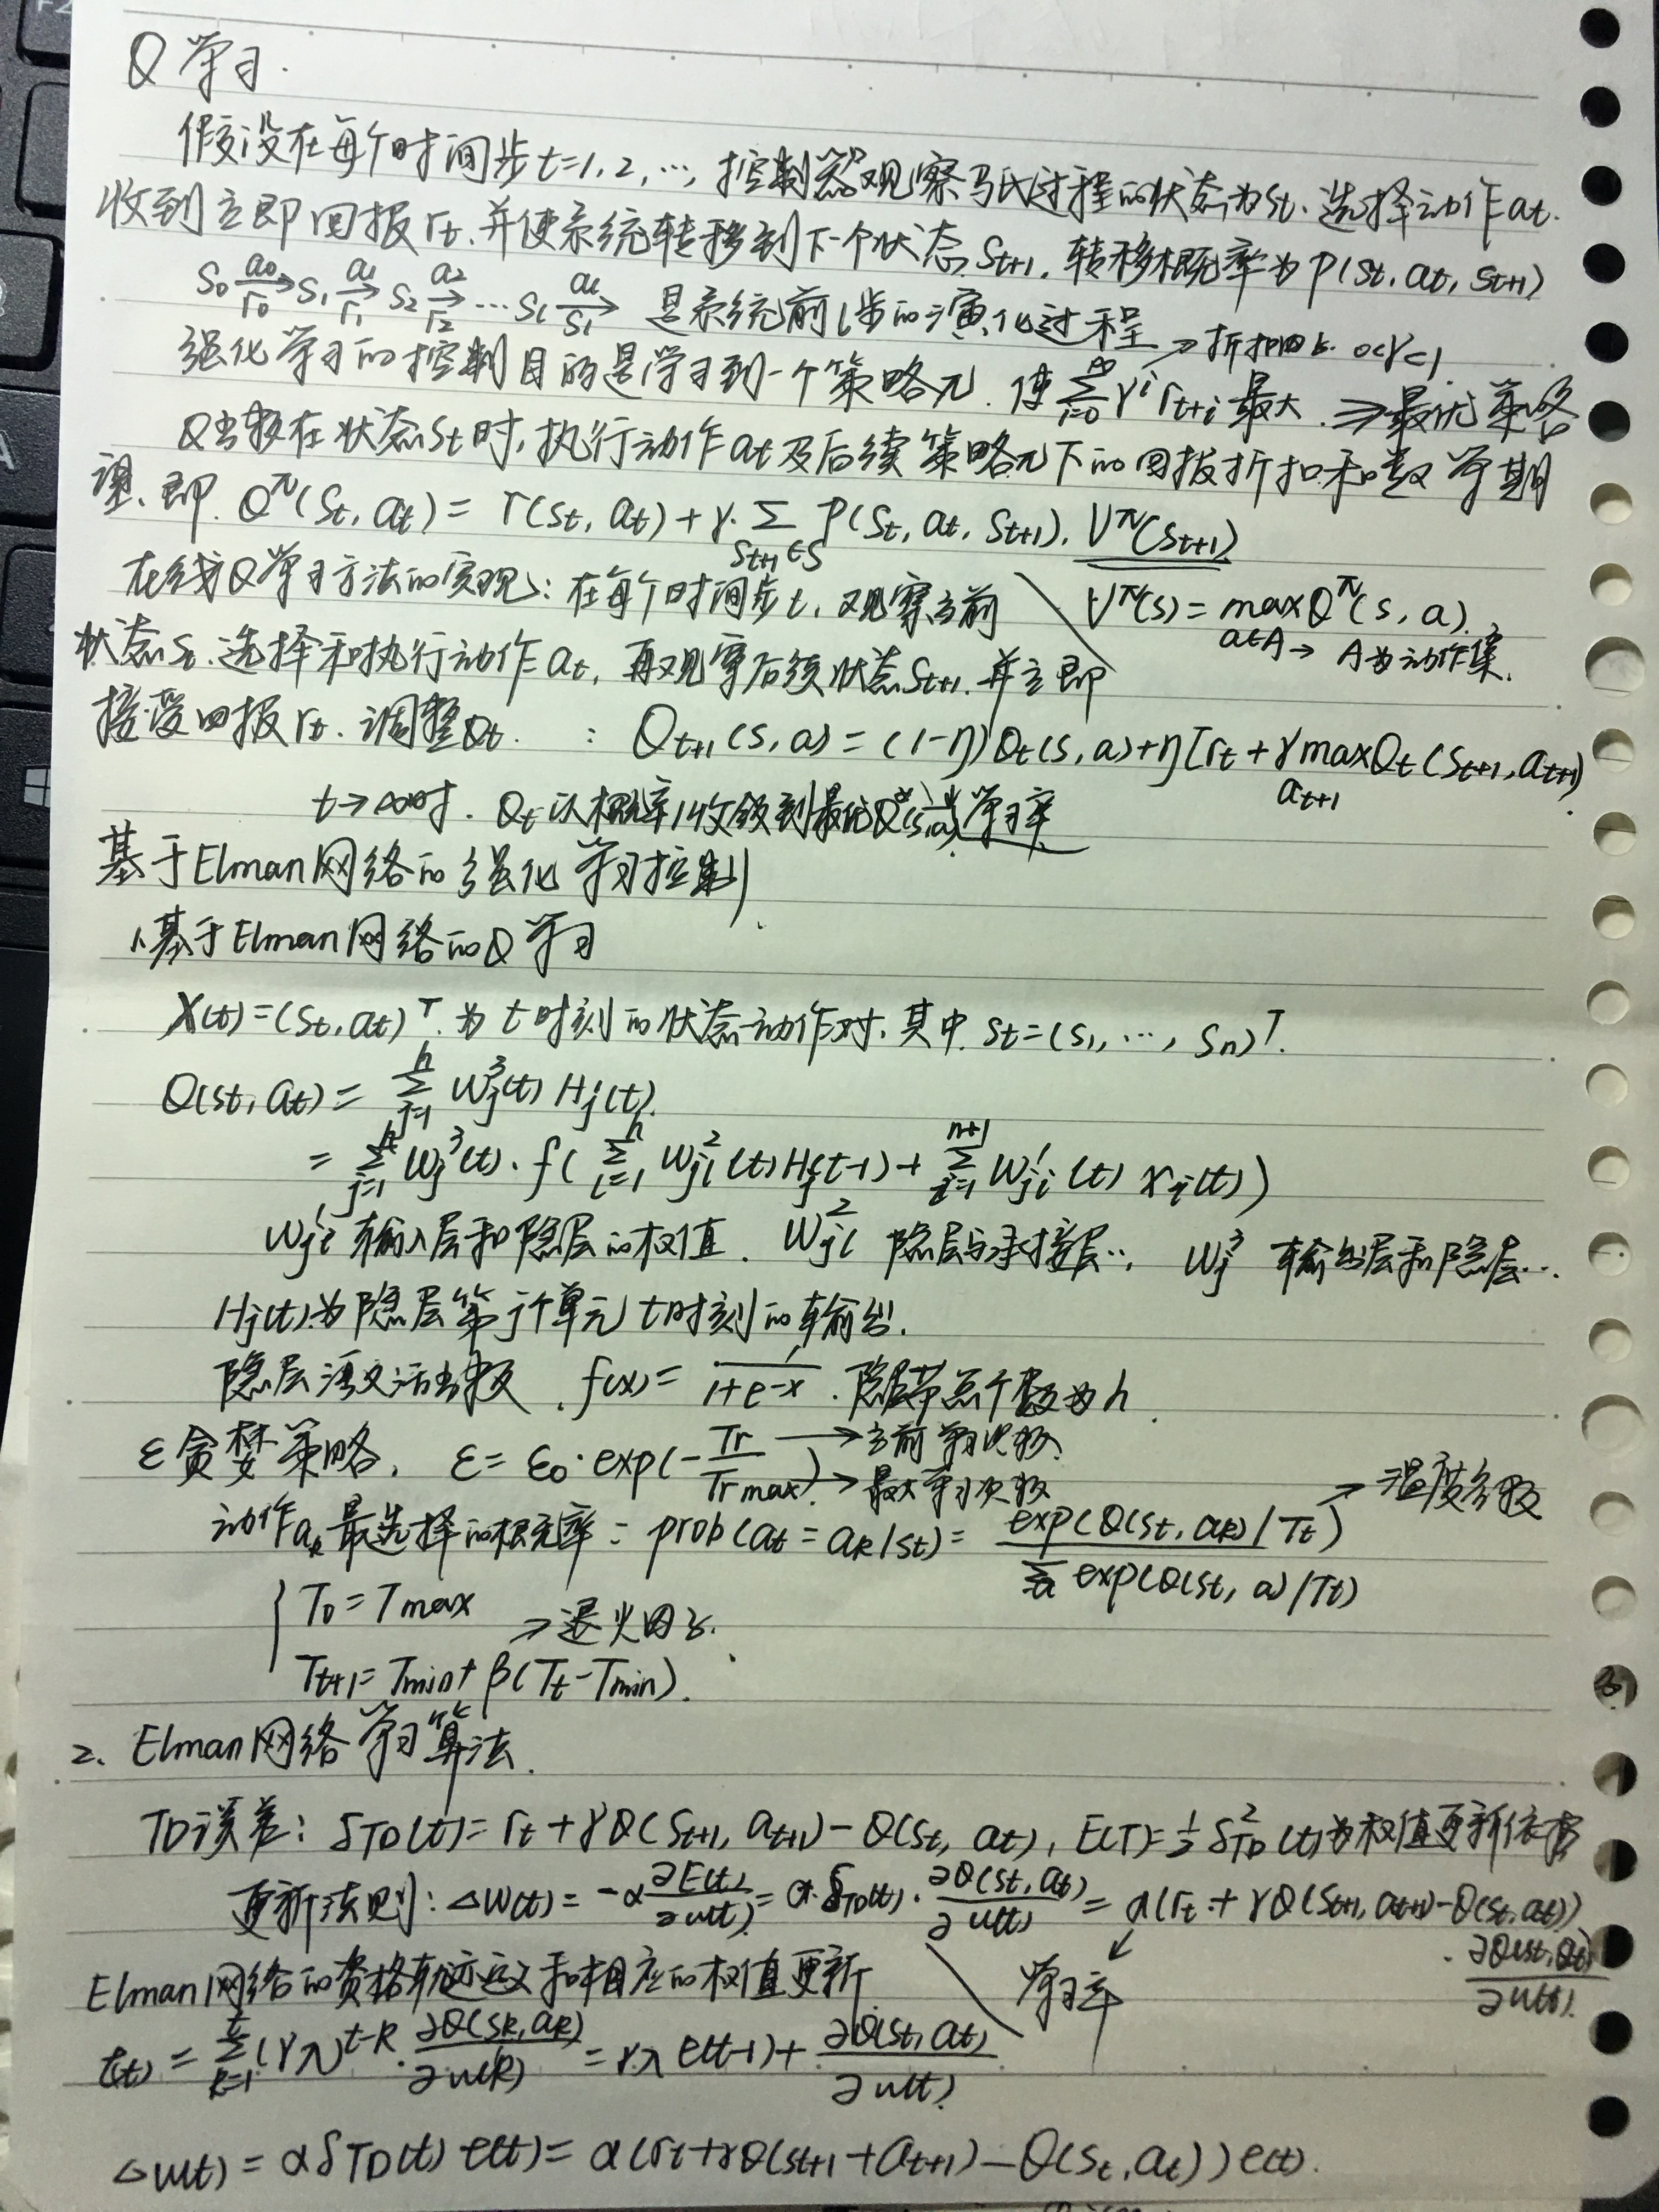 Q学习.
假设在每个时间步t=1,2,…,控制器观察马氏过程的状态为St.选择动作at.
收到立即回报rt.并使系统转移到下一个状态St+1.转移概率为P(St,at,St+1)
S0 →(a0/r0) S1 →(a1/r1) S2 →(a2/r2) … Sl →(al/Sl) 是系统前l步的演化过程 →折扣因子. 0<γ<1
强化学习的控制目的是学习到一个策略π.使 ∑_{i=0}^{∞} γ^i r_{t+i} 最大.⇒最优策略
Q函数在状态St时,执行动作at及后续策略π下的回报折扣和数学期
望.即. Q^π(St,at)=r(St,at)+γ·∑_{St+1∈S} P(St,at,St+1). V^π(St+1)
V^π(s)=max_{a∈A} Q^π(s,a).
→ A为动作集.
在线Q学习方法的实现:在每个时间步t,观察当前
状态St.选择和执行动作at,再观察后续状态St+1.并立即
接受回报rt.调整Qt. : Qt+1(s,a)=(1-η)Qt(s,a)+η[rt+γ max_{at+1} Qt(St+1,at+1)
t→∞时. Qt以概率1收敛到最优Q*(s,a) 学习率
基于Elman网络的强化学习控制.
1.基于Elman网络的Q学习
X(t)=(St,at)^T.为t时刻的状态动作对.其中.St=(S1,…,Sn)^T.
Q(St,at)=∑_{j=1}^{h} Wj^3(t) Hj(t).
=∑_{j=1}^{h} Wj^3(t)·f(∑_{l=1}^{h} Wjl^2(t)Hj(t-1)+∑_{i=1}^{n+1} Wji^1(t) xi(t))
Wji^1 输入层和隐层的权值. Wjl^2 隐层与承接层…, Wj^3 输出层和隐层…
Hj(t).为隐层第j个单元t时刻的输出.
隐层激活函数.f(x)=1/(1+e^-x).隐层节点个数为h.
ε贪婪策略. ε=ε0·exp(-Tr/Trmax) Tr→当前学习次数. Trmax→最大学习次数
动作ak最选择的概率:prob(at=ak/st)=exp(Q(st,ak)/Tt)/∑_a exp(Q(st,a)/Tt) →温度参数
{T0=Tmax
⇒退火因子.
Tt+1=Tmin+β(Tt-Tmin).
2. Elman网络学习算法.
TD误差:δTD(t)=rt+γQ(St+1,at+1)-Q(St,at), E(T)=½δ²TD(t)为权值更新依据
更新法则:△W(t)=-α ∂E(t)/∂w(t)=α·δTD(t)·∂Q(St,at)/∂w(t)=α(rt+γQ(St+1,at+1)-Q(St,at))
·∂Q(st,at)/∂w(t).
学习率
Elman网络的资格轨迹定义和相应的权值更新
e(t)=∑_{k=1}^{t}(γλ)^{t-k}·∂Q(Sk,ak)/∂w(k)=γλe(t-1)+∂Q(St,at)/∂w(t).
△w(t)=αδTD(t) e(t)=α(rt+γQ(st+1+at+1)-Q(St,at))e(t).